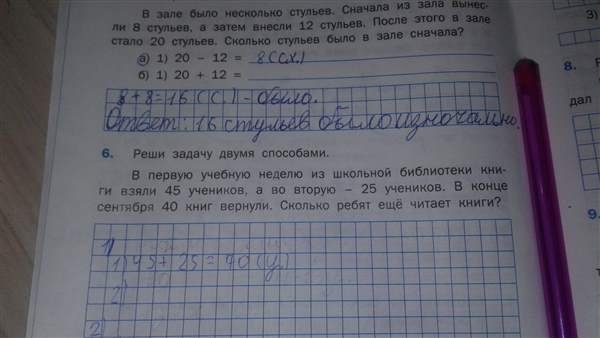 В зале было несколько стульев. Сначала из зала вынес-
ли 8 стульев, а затем внесли 12 стульев. После этого в зале
стало 20 стульев. Сколько стульев было в зале сначала?
а) 1) 20 – 12 = 8 (ст.)
б) 1) 20 + 12 =
8 + 8 = 16 (с.) - было.
Ответ: 16 стульев было изначально.
6. Реши задачу двумя способами.
В первую учебную неделю из школьной библиотеки кни-
ги взяли 45 учеников, а во вторую – 25 учеников. В конце
сентября 40 книг вернули. Сколько ребят ещё читает книги?
1)
1) 45 + 25 = 70 (у.)
2)
2)
3)
8.
дал
9.